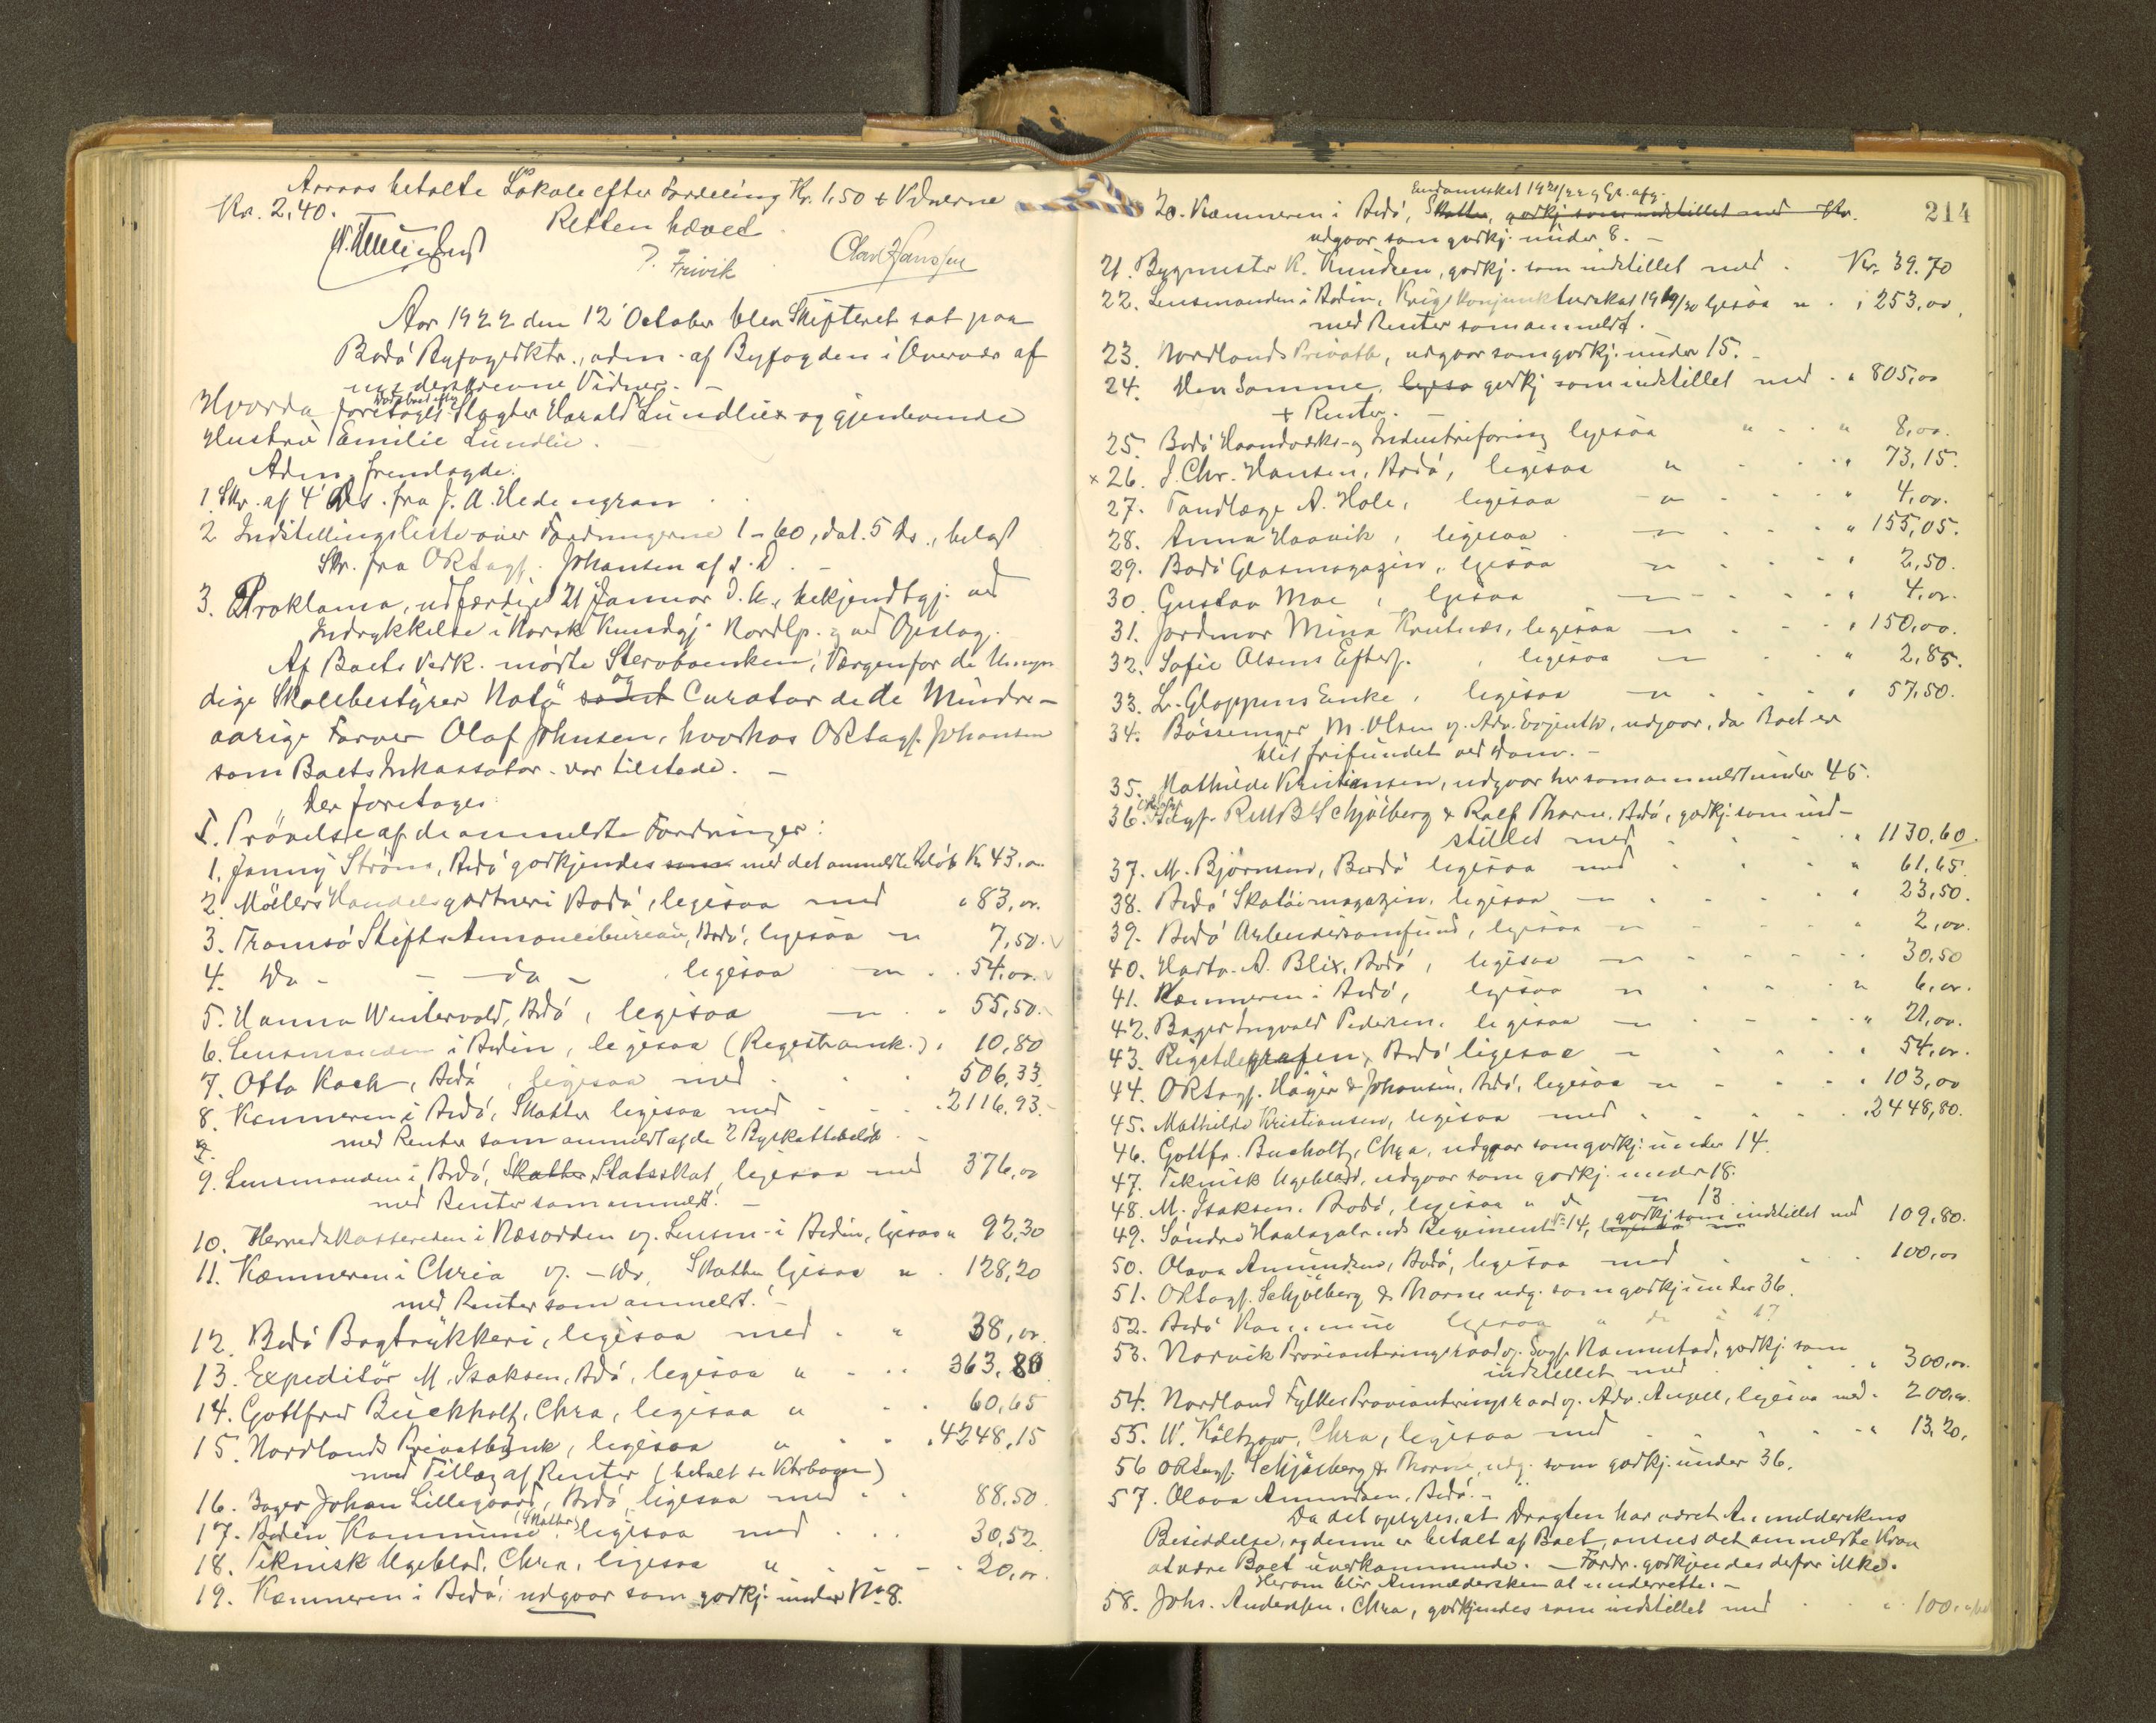 betalte Lokale efter Fordeling Kr. 1,50 + Vidnerne
Kr. 2,40.
Retten hævet
P. Frivik
Olav Hanssen
Aar 1922 den 12' October blev Skifteret sat paa
Bodø Byfogedktr., adm. af Byfogden i Overvær af
underskrevne Vidner. -
Hvorda foretoges Dødsboet efter Slagter Harald Lundlie og gjenlevende
Hustru Emilie Lundlie.
Adm. fremlagde:
1 Skr. af 4' ds. fra J. A. Hedengran
2 Indstillingsliste over Fordringerne 1-60, dat. 5 ds., belagt
Skr. fra ORsagf. Johansen af s. D. -
3. Proklama, udfærdiget 21 Januar d. A., bekjendtgj. ved
Indrykkelse i Norsk Kundgj. Nordlp. og ved Opslag.
Af Boets Vedk. mødte Stervboenken, Værgen for de Umyn-
dige Skolebestyrer Notø samt og Curator de de Mindre-
aarige Farver Olaf Johnsen, hvorhos ORsagf. Johansen
som Boets Inkassator var tilstede. -
Der foretoges:
I. Prøvelse af de anmeldte Fordringer:
1. Jenny Strøm, Bodø godkjendes som med det anmeldte Beløb Kr. 43,00
2. Møllers Handelsgartneri Bodø, ligesaa med " 83,00.
3. Tromsø Stifts Annoncebureau, Bodø, ligesaa " 7,50. v
4. Do - - do - ligesaa " 54,00. v
5. Hanna Wintervold, Bdø, ligesaa " 55,50.
6. Lensmanden i Bodin, ligesaa (Regestramk.) " 10,80
7. Otto Koch, Bodø, ligesaa med 506,33.
8. Kæmneren i Bodø, Skatter ligesaa med 2116,93.
med Renter som anmeldt af de 2 Byskattebeløb. -
9. Lensmanden i Bodø, Skatter, Statsskat, ligesaa med 376,00
med Renter som anmeldt! -
10. Herredskassereren i Næsodden v. Lensm. i Bodin, ligesaa " 92,30
11. Kæmneren i Chria v. - Do, Skatter ligesaa " 128,20
med Renter som anmeldt! -
12. Bodø Bogtrykkeri, ligesaa med " 38,00.
13. Expeditør M. Isaksen, Bdø, ligesaa " 363,80
14. Gottfred Buchholtz, Chra, ligesaa " 60,65
15. Nordlands Privatbank, ligesaa " 4248,15
med Tillæg af Renter (betalt se Vekrbogen)
16. Bager Johan Lillegaard, Bodø, ligesaa med 88,50.
17. Bodin Kommune (Skatter), ligesaa med 30,52.
18. Teknisk Ugeblad, Chra, ligesaa " 20,00.
19. Kæmneren i Bodø, udgaar som godkj. under No. 8.
214
Eiendomsskat 1921/22 og Gr. afg.
20. Kæmneren i Bodø, Skatter, godkj. som indstillet med Kr.
udgaar som godkj. under 8. -
21. Bygmester K. Knudsen, godkj. som indstillet med Kr. 39.70
22. Lensmanden i Bodin, Krigskonjunkturskat 1919/20 ligesaa " 253,00,
med Renter som anmeldt.
23. Nordlands Privatb., udgaar som godkj. under 15. -
24. Den Samme, ligesa godkj som indstillet med " 805,00
+ Renter. -
25. Bodø Haandværks- og Industriforening ligesaa " " 8,00.
x 26. J. Chr. Hansen, Bodø, ligesaa " " 73,15.
27. Tandlæge A. Hole, ligesaa " " 4,00.
28. Anna Haavik, ligesaa " " 155,05.
29. Bodø Glasmagazin, ligesaa " " 2,50.
30. Gustav Moe, ligesaa " " 4,00.
31. Jordmor Mina Krutnes, ligesaa " " 150,00.
32. Sofie Olsens Efterf., ligesaa " " 2,85.
33. L. Gloppens Enke, ligesaa " " 57,50.
34. Bøssemager M. Olsen v. Adv. Evjenth, udgaar, da Boet er
blit frifundet ved Dom. -
35. Mathilde Kristiansen, udgaar her som anmeldt under 45.
36. ORsagf. Schjølberg & Rolf Thorne, Bodø, godkj. som ind-
stillet med " 1130,60.
37. M. Bjørnson, Bodø ligesaa med " 61,65.
38. Bodø Skotøimagazin, ligesaa " " 23,50.
39. Bodø Arbeidersamfund, ligesaa " " 2,00.
40. Hartv. A. Blix, Bodø, ligesaa " 30,50
41. Kæmneren i Bodø, ligesaa " " 6,00.
42. Bager Ingvald Pedersen, ligesaa " " 21,00.
43. Rigstelegrafen, Bodø ligesaa " " 54,00.
44. ORsagf. Høyer & Johansen, Bodø, ligesaa " " 103,00
45. Mathilde Kristiansen, ligesaa med 2448,80.
46. Gottfr. Bucholtz, Chra, udgaar som godkj. under 14.
47. Teknisk Ugeblad, udgaar som godkj. under 18.
48. M. Isaksen, Bodø, ligesaa " d " 13
49. Søndre Haalogalands Regiment No 14, ligesaa godkj. som indstillet med 109,80.
50. Olava Amundsen, Bodø, ligesaa med 100,00
51. ORsagf. Schjølberg & Thorne udg. som godkj under 36.
52. Bodø Kommune ligesaa " do " 17
53. Narvik Provianteringsraad v. Sagf. Rannestad, godkj. som
indstillet med " 300,00.
54. Nordland Fylkes Provianteringsraad v. Adv. Angell, ligesaa med " 200,00.
55. W. Køltzow, Chra, ligesaa med " 13,20.
56 ORsagf. Schjølberg & Thorne, udg. som godkj. under 36.
57. Olava Amundsen, Bodø. -
Da det oplyses, at Dragten har været Anmelderskens
Besiddelse, og denne er betalt af Boet, ansees det anmeldte Krav
at være Boet uvedkommende. - Fordr. godkjendes derfor ikke.
Herom blir Anmeldersken at underrette. -
58. Johs. Anderssen, Chra, godkjendes som indstillet med " 100,